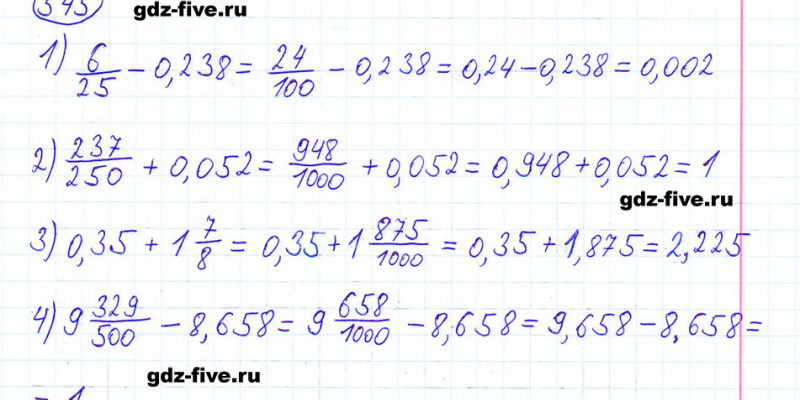 gdz-five.ru
1) 6/25 - 0,238 = 24/100 - 0,238 = 0,24 - 0,238 = 0,002
2) 237/250 + 0,052 = 948/1000 + 0,052 = 0,948 + 0,052 = 1
gdz-five.ru
3) 0,35 + 1 7/8 = 0,35 + 1 875/1000 = 0,35 + 1,875 = 2,225
4) 9 329/500 - 8,658 = 9 658/1000 - 8,658 = 9,658 - 8,658 =
gdz-five.ru
= 1